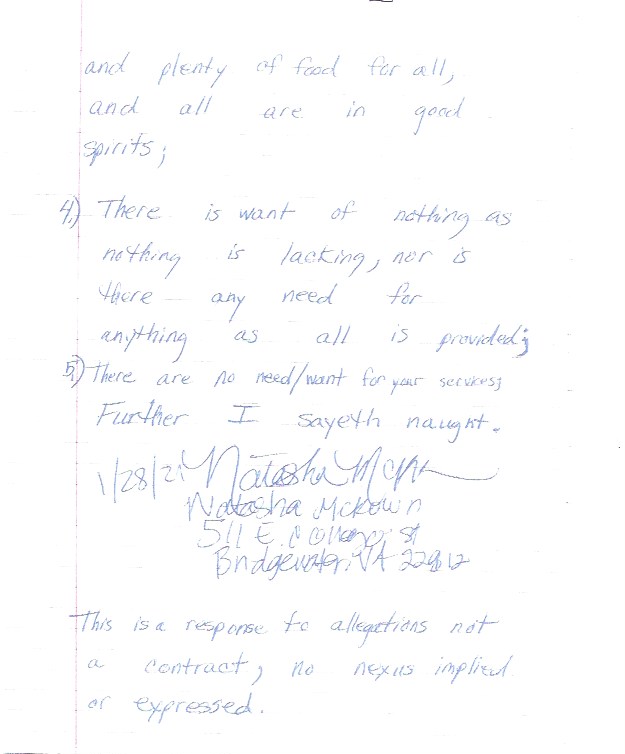 and plenty of food for all,
and all are in good
spirits;
4.) There is want of nothing as
nothing is lacking, nor is
there any need for
anything as all is provided;
5.) There are no need/want for your services;
Further I sayeth naught.
1/28/21 Natasha
Natasha McKown
511 E. College St
Bridgewater, VA 22812
This is a response to allegations not
a contract, no nexus implied
or expressed.